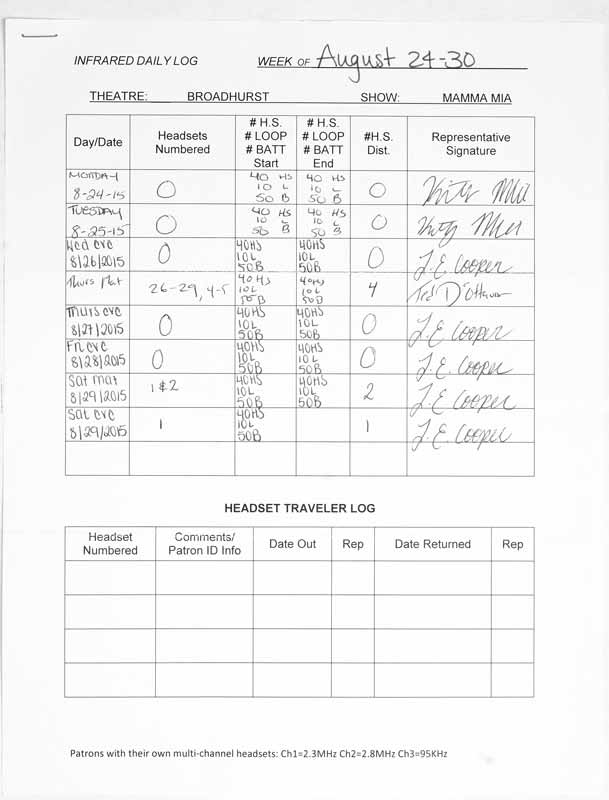 INFRARED DAILY LOG WEEK OF August 24-30
THEATRE: BROADHURST SHOW: MAMMA MIA
Day/Date
Headsets
Numbered
# H.S.
# LOOP
# BATT
Start
# H.S.
# LOOP
# BATT
End
#H.S.
Dist.
Representative
Signature
MONDAY
8-24-15
0
40 HS
10 L
50 B
40 HS
10 L
50 B
0
TUESDAY
8-25-15
0
40 HS
10 L
50 B
40 HS
10 L
50 B
0
Wed eve
8/26/2015
0
40HS
10L
50B
40HS
10L
50B
0
J.E. Cooper
Thurs Mat
26-29, 4-5
40HS
10L
50B
40HS
10L
50B
4
Ted D'Ottavio
Thurs eve
8/27/2015
0
40HS
10L
50B
40HS
10L
50B
0
J.E. Cooper
Fri eve
8/28/2015
0
40HS
10L
50B
40HS
10L
50B
0
J.E. Cooper
Sat mat
8/29/2015
1 & 2
40HS
10L
50B
40HS
10L
50B
2
J.E. Cooper
Sat eve
8/29/2015
1
40HS
10L
50B
1
J.E. Cooper
HEADSET TRAVELER LOG
Headset
Numbered
Comments/
Patron ID Info
Date Out
Rep
Date Returned
Rep
Patrons with their own multi-channel headsets: Ch1=2.3MHz Ch2=2.8MHz Ch3=95KHz